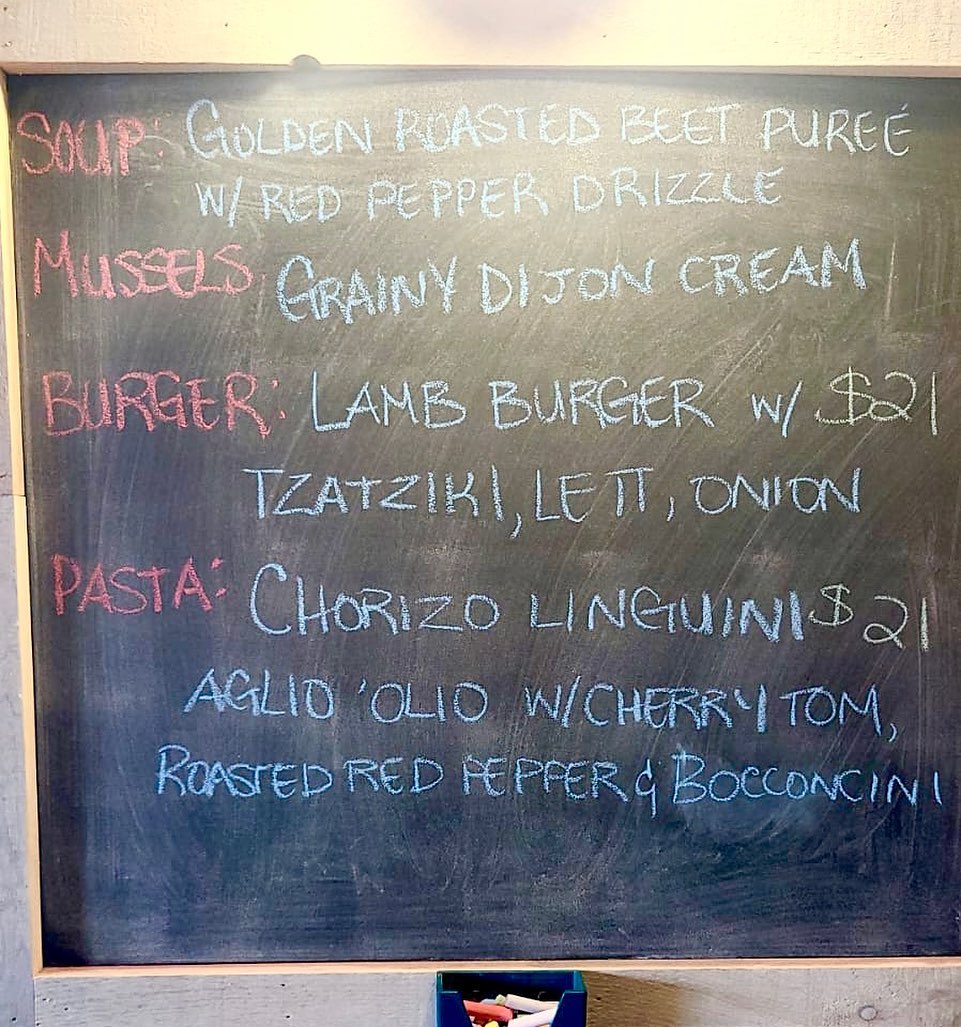 SOUP: GOLDEN ROASTED BEET PUREÉ
W/ RED PEPPER DRIZZLE
MUSSELS: GRAINY DIJON CREAM
BURGER: LAMB BURGER W/ $21
TZATZIKI, LETT, ONION
PASTA: CHORIZO LINGUINI $21
AGLIO 'OLIO W/ CHERRY TOM,
ROASTED RED PEPPER & BOCCONCINI